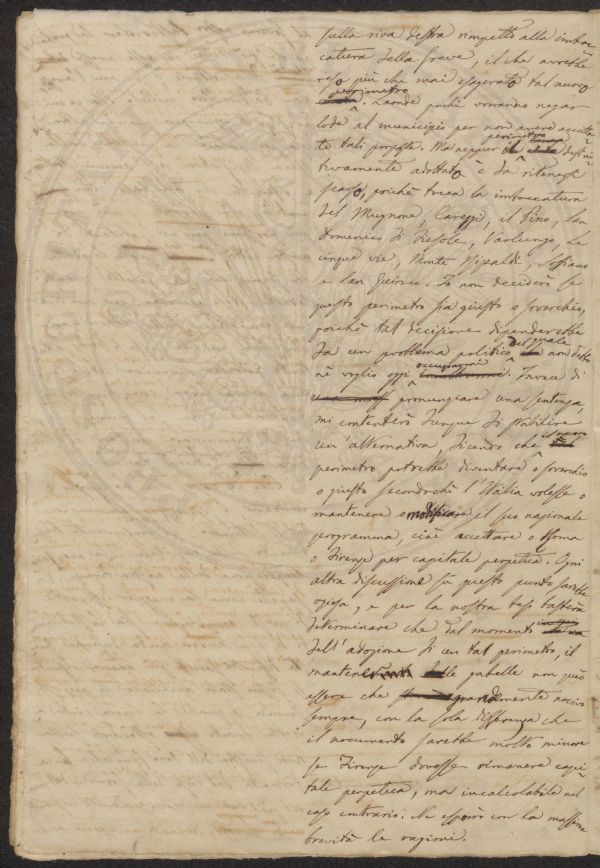 sulla riva destra rimpetto alla imboc-
catura della Greve, il che avrebbe
reso più che mai esagerato tal nuovo
perimetro
. Laonde pochi vorranno negar
lode al municipio per non avere accetta-
te tali proposte. Ma neppur il perimetro defini-
tivamente adottato è da ritenersi
scarso, poichè tocca la imboccatura
del Mugnone, Careggi, il Pino, San
Domenico di Fiesole, Varlungo, Le
cinque vie, Monte Ripaldi, Soffiano
e San Quirico. Io non deciderò se
questo perimetro sia giusto o soverchio,
poichè tal decisione dipenderebbe
da un problema politico del quale non debbo
nè voglio oggi occuparmi. Invece di
pronunziare una sentenza,
mi contenterò dunque di stabilire
un'alternativa, dicendo che
perimetro potrebbe diventare o soverchio
o giusto secondochè l'Italia volesse o
mantenere o modificare il suo nazionale
programma, cioè accettare o Roma
o Firenze per capitale perpetua. Ogni
altra discussione su questo punto sarebbe
oziosa, e per la nostra tesi basterà
determinare che dal momento
dell'adozione di un tal perimetro, il
mantenere delle gabelle non può
essere che grandemente nocivo
sempre, con la sola differenza che
il nocumento sarebbe molto minore
se Firenze dovesse rimanere capi-
tale perpetua, ma incalcolabile nel
caso contrario. Ne esporrò con la massima
brevità le ragioni.